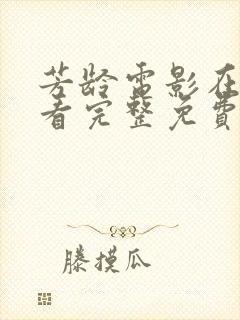 芳龄电影在
看完整免费
滕摸瓜